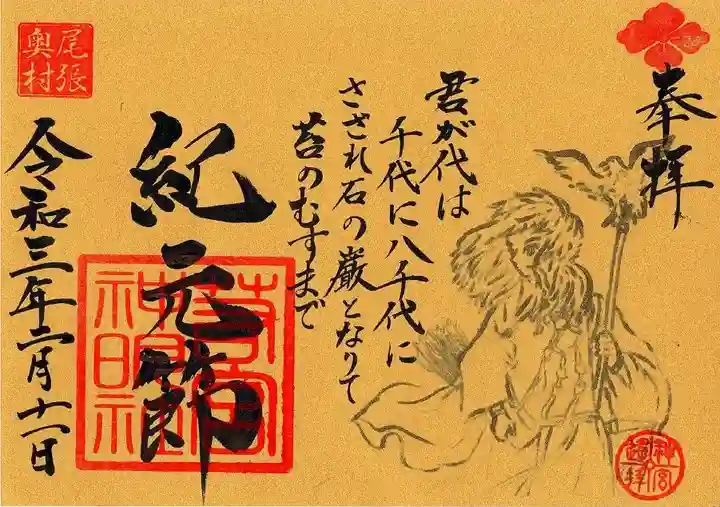 奉拝
君が代は
千代に八千代に
さざれ石の巌となりて
苔のむすまで
紀元節
尾張
奥村
令和三年二月十一日